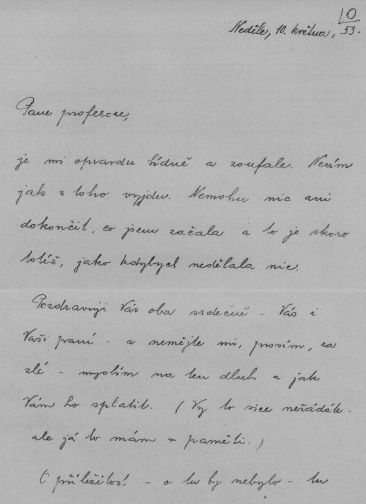 Neděle, 10. května, 53.
Pane profesore,
je mi opravdu bídně a zoufale. Nevím
jak z toho vyjdu. Nemohu nic ani
dokončit, co jsem začala a to je skoro
totéž, jako kdybych nedělala nic.
Pozdravuji Vás oba srdečně - Vás i
Vaší paní - a nemějte mi, prosím, za
zlé - myslím na ten dluh a jak
Vám ho splatit. (Vy to sice nežádáte -
ale já to mám v paměti.)
O příležitost - o tu by nebylo - tu